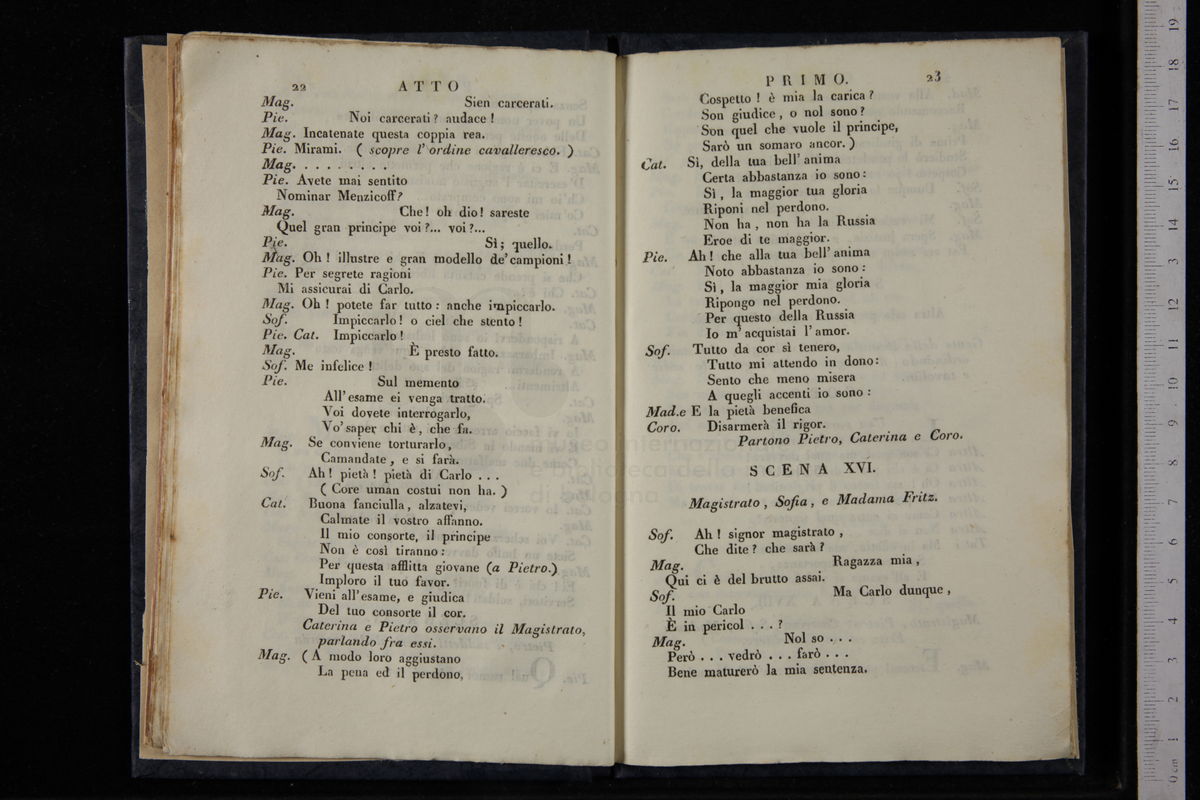 22 ATTO
Mag. Sien carcerati.
Pie. Noi carcerati? audace!
Mag. Incatenate questa coppia rea.
Pie. Mirami. ( scopre l' ordine cavalleresco. )
Mag. . . . . . . . .
Pie. Avete mai sentito
Nominar Menzicoff?
Mag. Che! oh dio! sareste
Quel gran principe voi?... voi?...
Pie. Sì; quello.
Mag. Oh! illustre e gran modello de' campioni!
Pie. Per segrete ragioni
Mi assicurai di Carlo.
Mag. Oh! potete far tutto: anche impiccarlo.
Sof. Impiccarlo! o ciel che stento!
Pie. Cat. Impiccarlo!
Mag. È presto fatto.
Sof. Me infelice!
Pie. Sul memento
All' esame ei venga tratto.
Voi dovete interrogarlo,
Vo' saper chi è, che fa.
Mag. Se conviene torturarlo,
Camandate, e si farà.
Sof. Ah! pietà! pietà di Carlo . . .
( Core uman costui non ha. )
Cat. Buona fanciulla, alzatevi,
Calmate il vostro affanno.
Il mio consorte, il principe
Non è così tiranno:
Per questa afflitta giovane (a Pietro.)
Imploro il tuo favor.
Pie. Vieni all' esame, e giudica
Del tuo consorte il cor.
Caterina e Pietro osservano il Magistrato,
parlando fra essi.
Mag. ( A modo loro aggiustano
La pena ed il perdono,
PRIMO. 23
Cospetto! è mia la carica?
Son giudice, o nol sono?
Son quel che vuole il principe,
Sarò un somaro ancor. )
Cat. Sì, della tua bell' anima
Certa abbastanza io sono:
Sì, la maggior tua gloria
Riponi nel perdono.
Non ha, non ha la Russia
Eroe di te maggior.
Pie. Ah! che alla tua bell' anima
Noto abbastanza io sono:
Sì, la maggior mia gloria
Ripongo nel perdono.
Per questo della Russia
Io m' acquistai l' amor.
Sof. Tutto da cor sì tenero,
Tutto mi attendo in dono:
Sento che meno misera
A quegli accenti io sono:
Mad.e E la pietà benefica
Coro. Disarmerà il rigor.
Partono Pietro, Caterina e Coro.
SCENA XVI.
Magistrato, Sofia, e Madama Fritz.
Sof. Ah! signor magistrato,
Che dite? che sarà?
Mag. Ragazza mia,
Qui ci è del brutto assai.
Sof. Ma Carlo dunque,
Il mio Carlo
È in pericol . . . ?
Mag. Nol so . . .
Però . . . vedrò . . . farò . . .
Bene maturerò la mia sentenza.